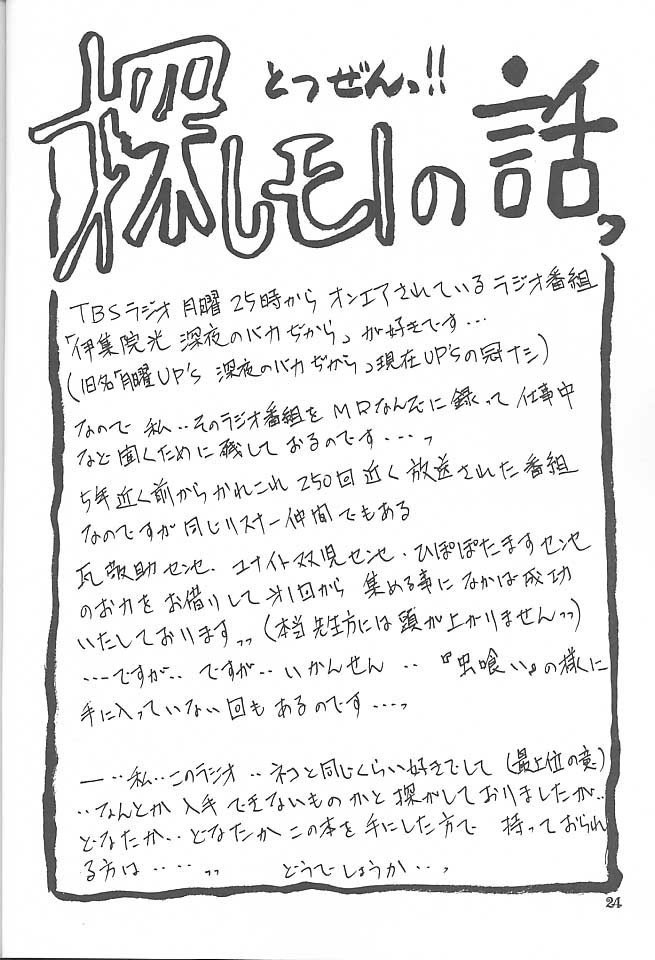 とつぜんっ!!
探しモノの話っ
TBSラジオ 月曜 25時から オンエアされている ラジオ番組
「伊集院光 深夜のバカぢから」が好きです…
(旧名「月曜UP'S 深夜のバカぢから」現在UP'Sの冠ナシ)
なので 私‥そのラジオ番組を MDなんぞに録って 仕事中
など聞くために残しておるのです‥‥っ
5年近く前からかれこれ 250回近く放送された番組
なのですが同じリスナー仲間でもある
瓦敬助センセ、ユナイト双児センセ・ひぽぽたますセンセ
のお力をお借りして 第1回から 集める事に なかば成功
いたしております〟(本当先生方には頭が上がりませんっ)
‥‥ですが‥ ですが‥ いかんせん ‥ 『虫喰い』の様に
手に入っていない回もあるのです‥‥っ
ー‥私‥このラジオ‥ネコと同じくらい好きでして(最上位の意)
‥なんとか 入手 できないもの かと 探がしておりましたが‥
どなたか‥ どなたか この本を 手にした方で 持っておられ
る方は ‥‥〟 どうでしょうか‥っ
24